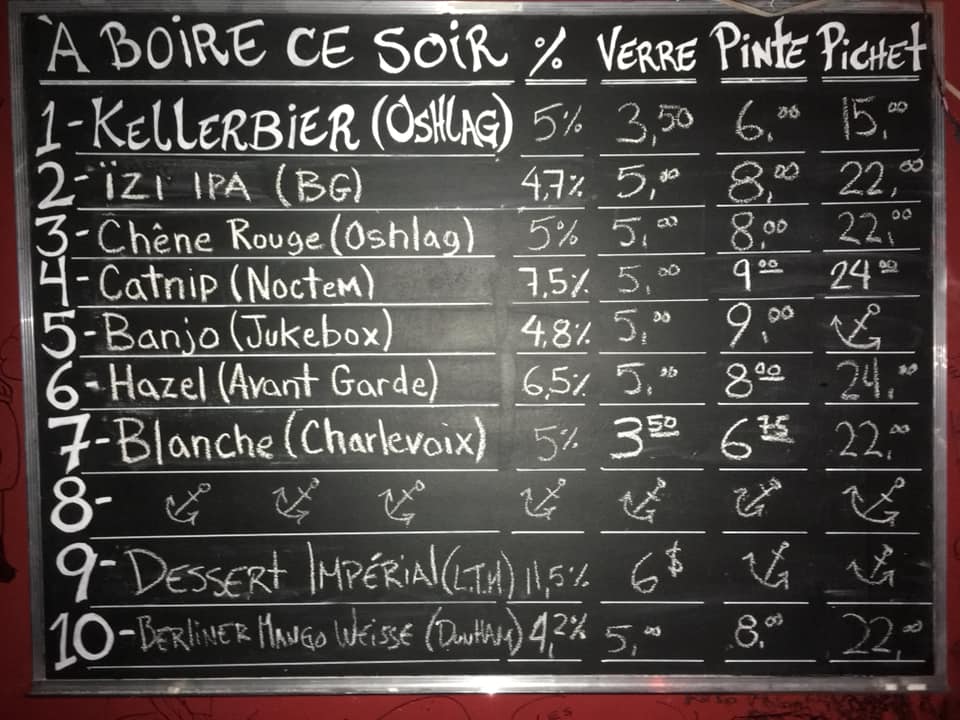 À BOIRE CE SOIR % VERRE PINTE PICHET
1- KELLERBIER (OSHLAG) 5% 3,50 6,00 15,00
2- ÏZI IPA (BG) 4,7% 5,00 8,00 22,00
3- Chêne Rouge (Oshlag) 5% 5,00 8,00 22,00
4- Catnip (Noctem) 7,5% 5,00 9 00 24 00
5- Banjo (Jukebox) 4,8% 5,00 9,00
6- Hazel (Avant Garde) 6,5% 5,00 8 00 24,00
7- Blanche (Charlevoix) 5% 3 50 6 75 22,00
8-
9- DESSERT IMPÉRIAl (L.T.M) 11,5% 6$
10- BERLINER MANGO WEISSE (DUNHAM) 4,2% 5,00 8,00 22,00